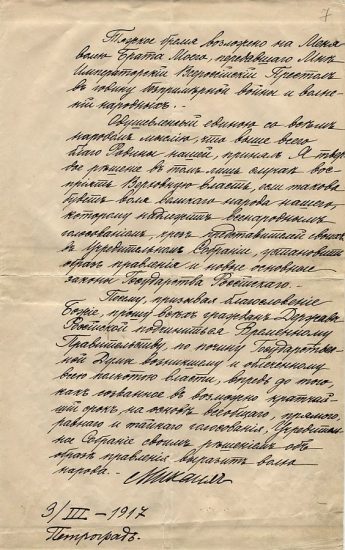 7
Тяжкое бремя возложено на Меня
волею Брата Моего, передавшего Мнѣ
Императорскій Всероссійскій Престолъ
въ годину безпримѣрной войны и волне-
ній народныхъ.
Одушевленный единою со всѣмъ
народомъ мыслію, что выше всего
благо Родины нашей, принялъ Я твер-
дое рѣшеніе въ томъ лишь случаѣ вос-
пріять Верховную власть, если такова
будетъ воля великаго народа нашего,
которому надлежитъ всенароднымъ
голосованіемъ, чрезъ представителей своихъ
въ Учредительномъ Собраніи, установить
образъ правленія и новые основные
законы Государства Россійскаго.
Посему, призывая благословеніе
Божіе, прошу всѣхъ гражданъ Державы
Россійской подчиниться Временному
Правительству, по почину Государствен-
ной Думы возникшему и облеченному
всею полнотою власти, впредь до того,
какъ созванное въ возможно кратчай-
шій срокъ, на основѣ всеобщаго, прямого,
равнаго и тайнаго голосованія, Учредитель-
ное Собраніе своимъ рѣшеніемъ объ
образѣ правленія выразитъ волю
народа.
Михаилъ
3/III - 1917
Петроградъ.